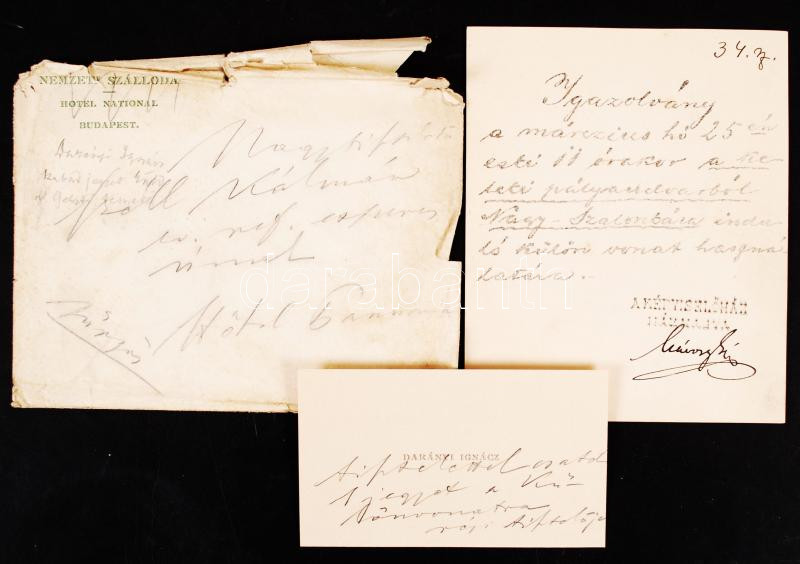 NEMZETI SZÁLLODA
HOTEL NATIONAL
BUDAPEST.
Darányi Ignác
Nagytiszteletű
Széll Kálmán
ev. ref. esperes
úrnak
Hôtel Pannonia
Sürgős
34. sz.
Igazolvány
a márczius hó 25 én
esti 11 órakor a ke-
leti pályaudvarból
Nagy-Szalontára indu
ló külön vonat haszná
latára.-
A KÉPVISELŐHÁZ
HÁZNAGYA
DARÁNYI IGNÁCZ
tisztelettel csatol
1 jegyet a Kü-
lönvonatra
régi tisztelője
darabanth